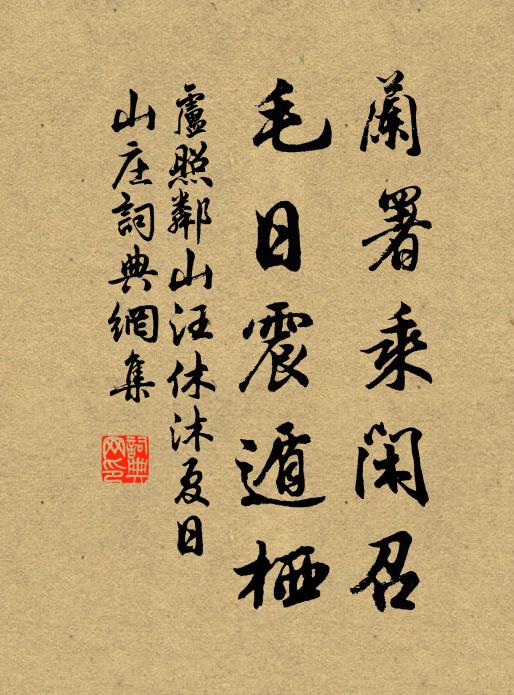 蘭署乘閑召
毛日震遁栖
盧照鄰山汪休沐夏日
山庄詞典網集
詞典网印